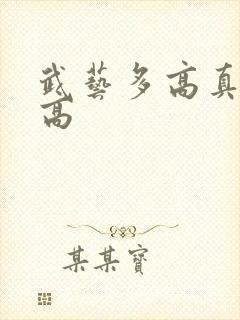 武藝多高真
高
某某寶